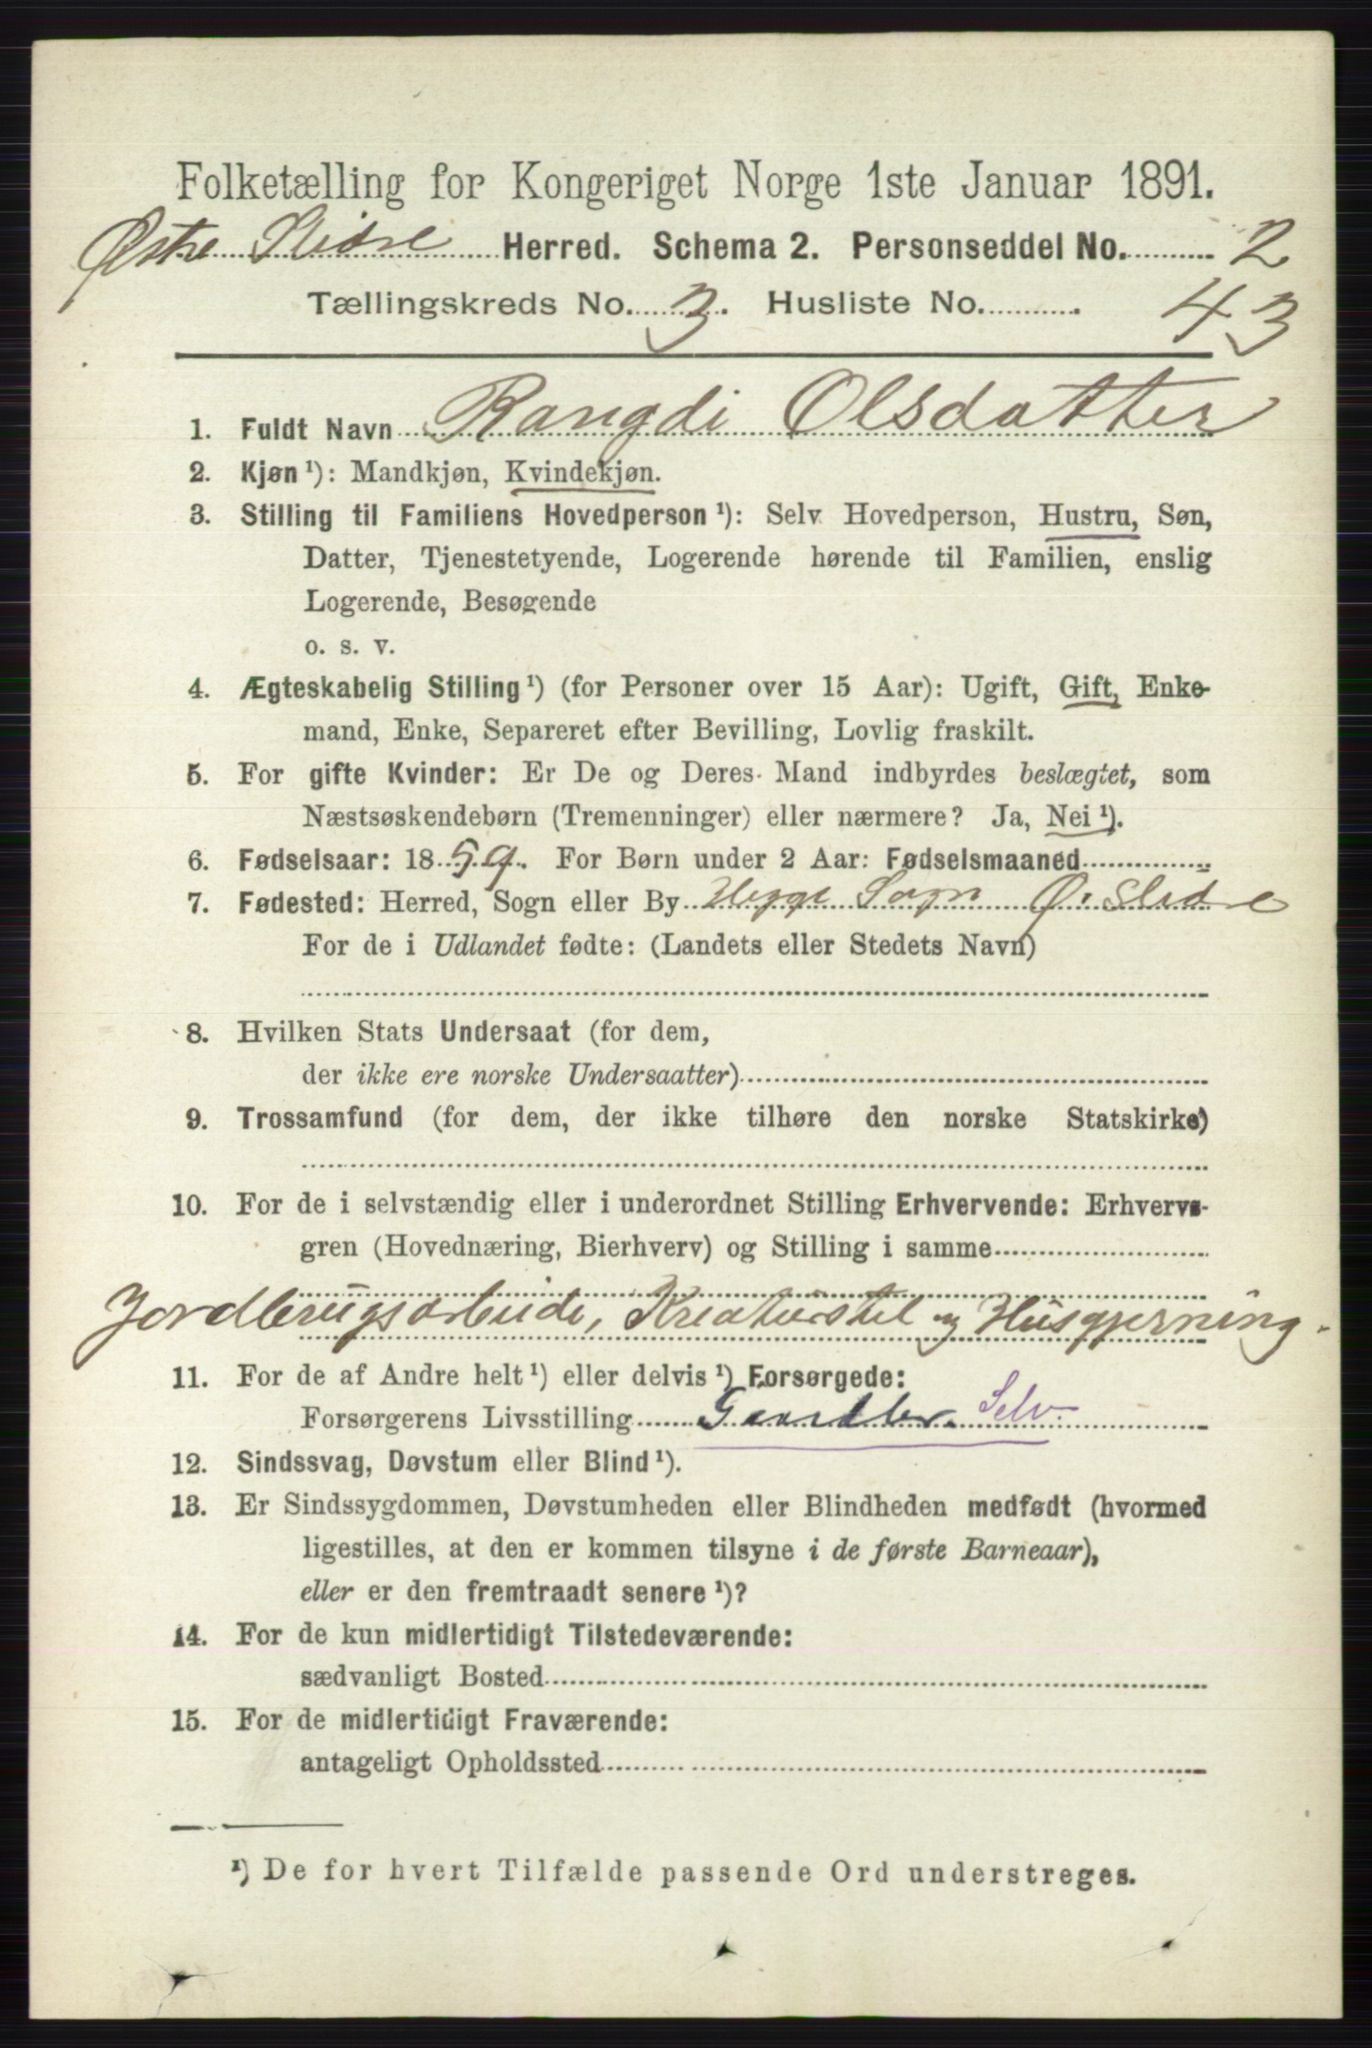 Folketælling for Kongeriget Norge 1ste Januar 1891.
Østre Slidre Herred. Schema 2. Personseddel No. 2
Tællingskreds No. 3. Husliste No. 43
1. Fuldt Navn Rangdi Olsdatter
2. Kjøn ¹): Mandkjøn, Kvindekjøn.
3. Stilling til Familiens Hovedperson ¹): Selv Hovedperson, Hustru, Søn,
Datter, Tjenestetyende, Logerende hørende til Familien, enslig
Logerende, Besøgende
o. s. v.
4. Ægteskabelig Stilling ¹) (for Personer over 15 Aar): Ugift, Gift, Enke-
mand, Enke, Separeret efter Bevilling, Lovlig fraskilt.
5. For gifte Kvinder: Er De og Deres Mand indbyrdes beslægtet, som
Næstsøskendebørn (Tremenninger) eller nærmere? Ja, Nei ¹).
6. Fødselsaar: 1859. For Børn under 2 Aar: Fødselsmaaned
7. Fødested: Herred, Sogn eller By Hegge Sogn Ø. Slidre
For de i Udlandet fødte: (Landets eller Stedets Navn)
8. Hvilken Stats Undersaat (for dem,
der ikke ere norske Undersaatter)
9. Trossamfund (for dem, der ikke tilhøre den norske Statskirke)
10. For de i selvstændig eller i underordnet Stilling Erhvervende: Erhvervs-
gren (Hovednæring, Bierhverv) og Stilling i samme
Jordbrugsarbeide, Kreaturstel og Husgjerning.
11. For de af Andre helt ¹) eller delvis ¹) Forsørgede:
Forsørgerens Livsstilling Gaardbr. Selv.
12. Sindssvag, Døvstum eller Blind ¹).
13. Er Sindssygdommen, Døvstumheden eller Blindheden medfødt (hvormed
ligestilles, at den er kommen tilsyne i de første Barneaar),
eller er den fremtraadt senere ¹)?
14. For de kun midlertidigt Tilstedeværende:
sædvanligt Bosted
15. For de midlertidigt Fraværende:
antageligt Opholdssted
¹) De for hvert Tilfælde passende Ord understreges.